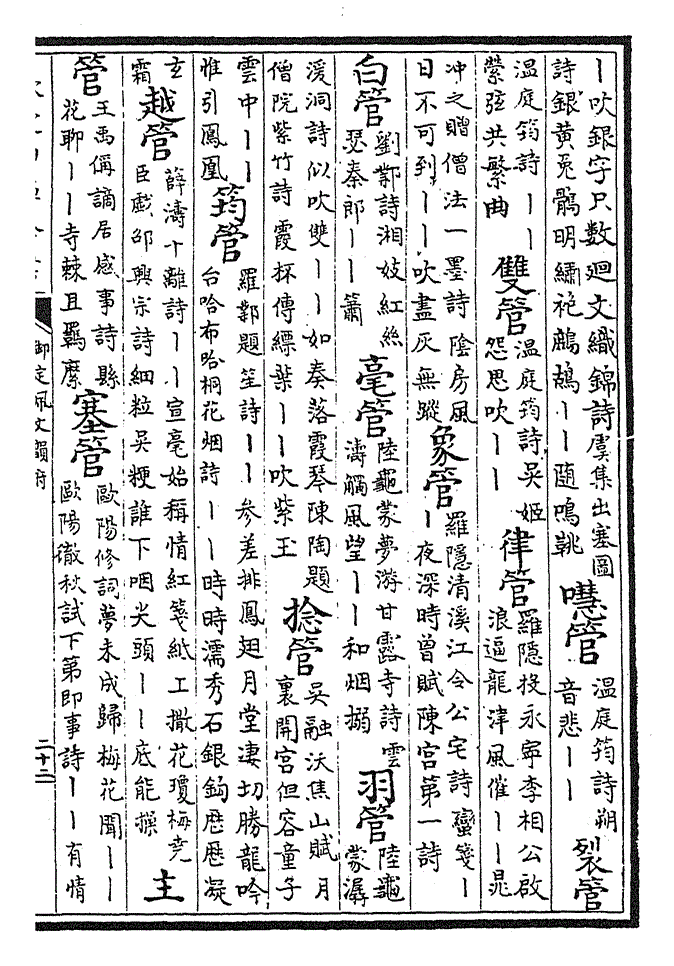 丨吹銀字只數廻文織錦詩虞集出塞圖
詩銀黄兎鶻明繡袍鷓鴣丨丨隨鳴鞉
嘒管
温庭筠詩朔
音悲丨丨
裂管
温庭筠詩丨丨
縈弦共繁曲
雙管
温庭筠詩吳姬
怨思吹丨丨
律管
羅隱投永寧李相公啟
浪逼龍津風催丨丨晁
冲之贈僧法一墨詩陰房風
日不可到丨丨吹盡灰無蹤
象管
羅隱清溪江令公宅詩蠻箋丨
丨夜深時曾賦陳宫第一詩
白管
劉鄴詩湘妓紅絲
瑟秦郎丨丨簫
毫管
陸龜蒙夢游甘露寺詩雲
濤觸風望丨丨和烟搦
羽管
陸龜
蒙潺
湲洞詩似吹雙丨丨如奏落霞琴陳陶題
僧院紫竹詩霞杯傳縹葉丨丨吹紫玉
捻管
吳融沃焦山賦月
裏開宫但容童子
雲中丨丨
惟引鳳凰
筠管
羅鄴題笙詩丨丨參差排鳳翅月堂凄切勝龍吟
台哈布哈桐花烟詩丨丨時時濡秀石銀鈎歴歴凝
玄
霜
越管
薛濤十離詩丨丨宣毫始稱情紅箋紙工撒花瓊梅尭
臣戯邵興宗詩細粒吳粳誰下咽尖頭丨丨底能操
主
管
王禹偁謫居感事詩縣
花聊丨丨寺棘且羈縻
塞管
歐陽修詞夢未成歸梅花聞丨丨
歐陽徹秋試下第即事詩丨丨有情
御定佩文韻府
二十二